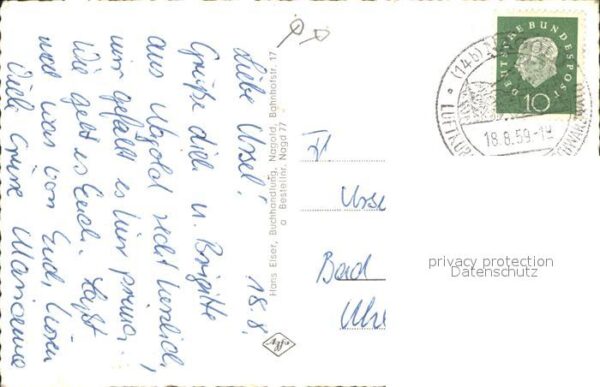 18.8.
Liebe Ursel!
Grüße dich u. Brigitte
aus Nagold recht herzlich,
mir gefällt es hier prima.
Wie geht es Euch. Laßt
mal was von Euch hören
Viele Grüsse Marianne
Hans Elser, Buchhandlung, Nagold, Bahnhofstr. 17
a Bestellnr. Nago 77
Frl
Urse
Bad
DEUTSCHE BUNDESPOST
10
(14b) NAGOLD
18.8.59-19
LUFTKUR
SCHWARZWALD
privacy protection
Datenschutz